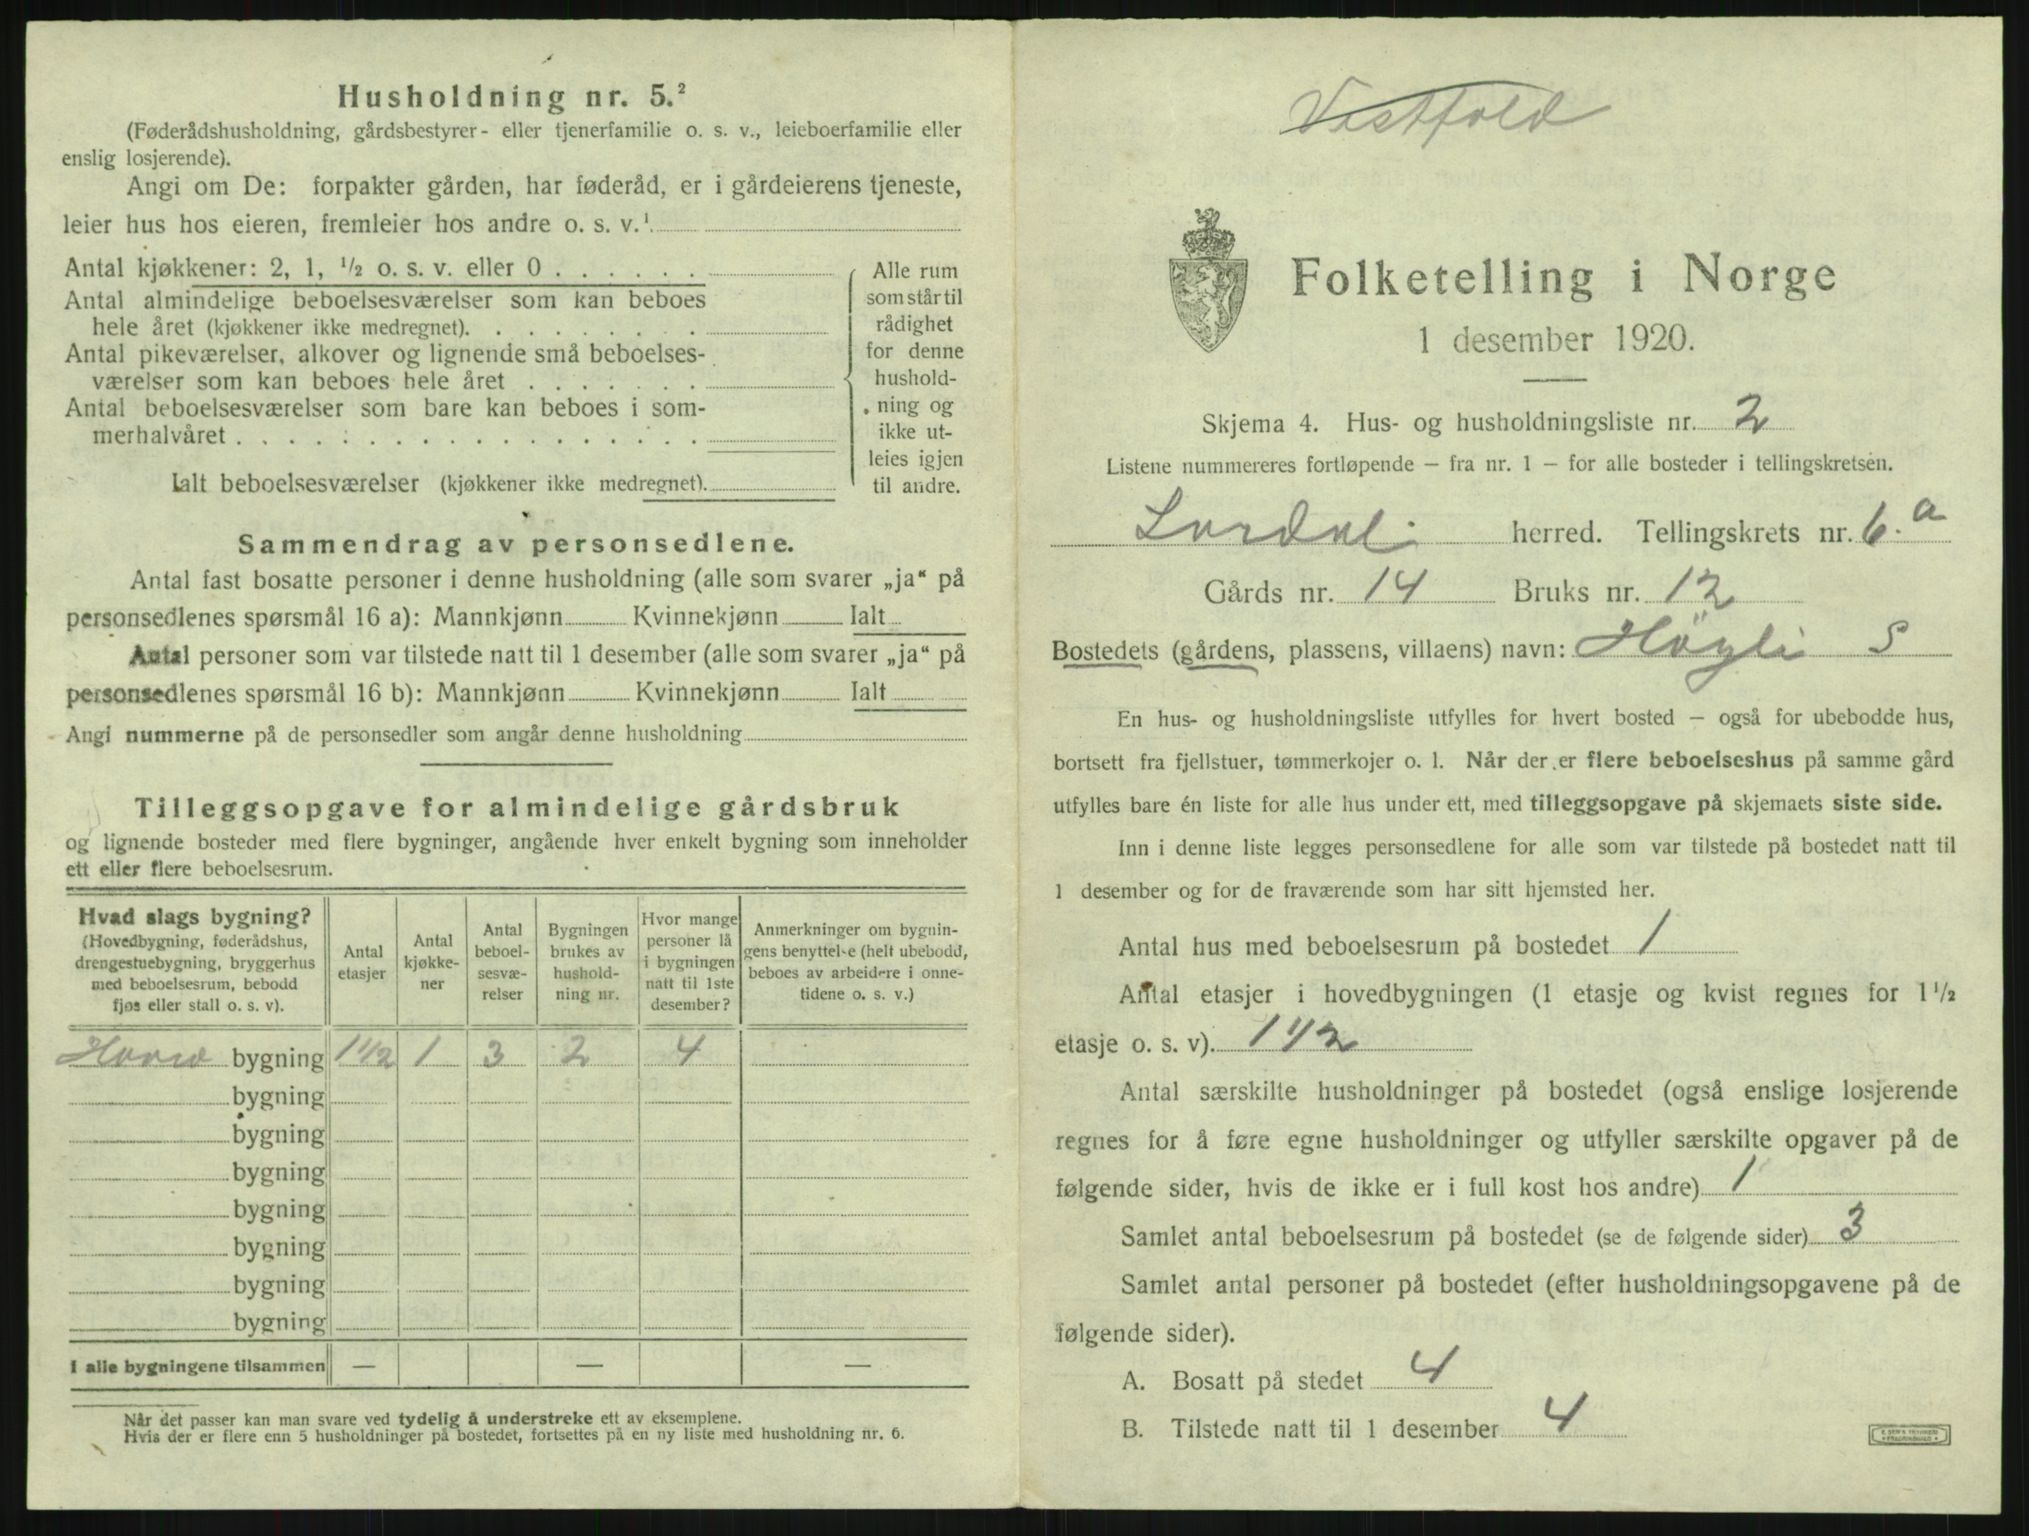 Husholdning nr. 5.²
(Føderådshusholdning, gårdsbestyrer- eller tjenerfamilie o. s. v., leieboerfamilie eller
enslig losjerende).
Angi om De: forpakter gården, har føderåd, er i gårdeierens tjeneste,
leier hus hos eieren, fremleier hos andre o. s. v.¹
Antal kjøkkener: 2, 1, ½ o. s. v. eller 0 . . . . . .
Antal almindelige beboelsesværelser som kan beboes
hele året (kjøkkener ikke medregnet). . . . . . . . .
Antal pikeværelser, alkover og lignende små beboelses-
værelser som kan beboes hele året . . . . . . .
Antal beboelsesværelser som bare kan beboes i som-
merhalvåret . . . . . . . . . . . . . . . . . .
Ialt beboelsesværelser (kjøkkener ikke medregnet).
Alle rum
som står til
rådighet
for denne
hushold-
ning og
ikke ut-
leies igjen
til andre.
Sammendrag av personsedlene.
Antal fast bosatte personer i denne husholdning (alle som svarer „ja“ på
personsedlenes spørsmål 16 a): Mannkjønn Kvinnekjønn Ialt
Antal personer som var tilstede natt til 1 desember (alle som svarer „ja“ på
personsedlenes spørsmål 16 b): Mannkjønn Kvinnekjønn Ialt
Angi nummerne på de personsedler som angår denne husholdning
Tilleggsopgave for almindelige gårdsbruk
og lignende bosteder med flere bygninger, angående hver enkelt bygning som inneholder
ett eller flere beboelsesrum.
Hvad slags bygning?
(Hovedbygning, føderådshus,
drengestuebygning, bryggerhus
med beboelsesrum, bebodd
fjøs eller stall o. s. v).
Antal
etasjer
Antal
kjøkke-
ner
Antal
beboel-
sesvæ-
relser
Bygningen
brukes av
hushold-
ning nr.
Hvor mange
personer lå
i bygningen
natt til 1ste
desember?
Anmerkninger om bygnin-
gens benyttelse (helt ubebodd,
beboes av arbeidere i onne-
tidene o. s. v.)
bygning 1 1/2 1 3 2 4
bygning
bygning
bygning
bygning
bygning
bygning
bygning
I alle bygningene tilsammen — — —
Når det passer kan man svare ved tydelig å understreke ett av eksemplene.
Hvis der er flere enn 5 husholdninger på bostedet, fortsettes på en ny liste med husholdning nr. 6.
Vestfold
Folketelling i Norge
1 desember 1920.
Skjema 4. Hus- og husholdningsliste nr. 2
Listene nummereres fortløpende – fra nr. 1 – for alle bosteder i tellingskretsen.
Lardal herred. Tellingskrets nr. 6.a
Gårds nr. 14 Bruks nr. 12
Bostedets (gårdens, plassens, villaens) navn: Høgli S
En hus- og husholdningsliste utfylles for hvert bosted – også for ubebodde hus,
bortsett fra fjellstuer, tømmerkojer o. l. Når der er flere beboelseshus på samme gård
utfylles bare én liste for alle hus under ett, med tilleggsopgave på skjemaets siste side.
Inn i denne liste legges personsedlene for alle som var tilstede på bostedet natt til
1 desember og for de fraværende som har sitt hjemsted her.
Antal hus med beboelsesrum på bostedet 1
Antal etasjer i hovedbygningen (1 etasje og kvist regnes for 1½
etasje o. s. v). 1 1/2
Antal særskilte husholdninger på bostedet (også enslige losjerende
regnes for å føre egne husholdninger og utfyller særskilte opgaver på de
følgende sider, hvis de ikke er i full kost hos andre) 1
Samlet antal beboelsesrum på bostedet (se de følgende sider) 3
Samlet antal personer på bostedet (efter husholdningsopgavene på de
følgende sider).
A. Bosatt på stedet 4
B. Tilstede natt til 1 desember 4